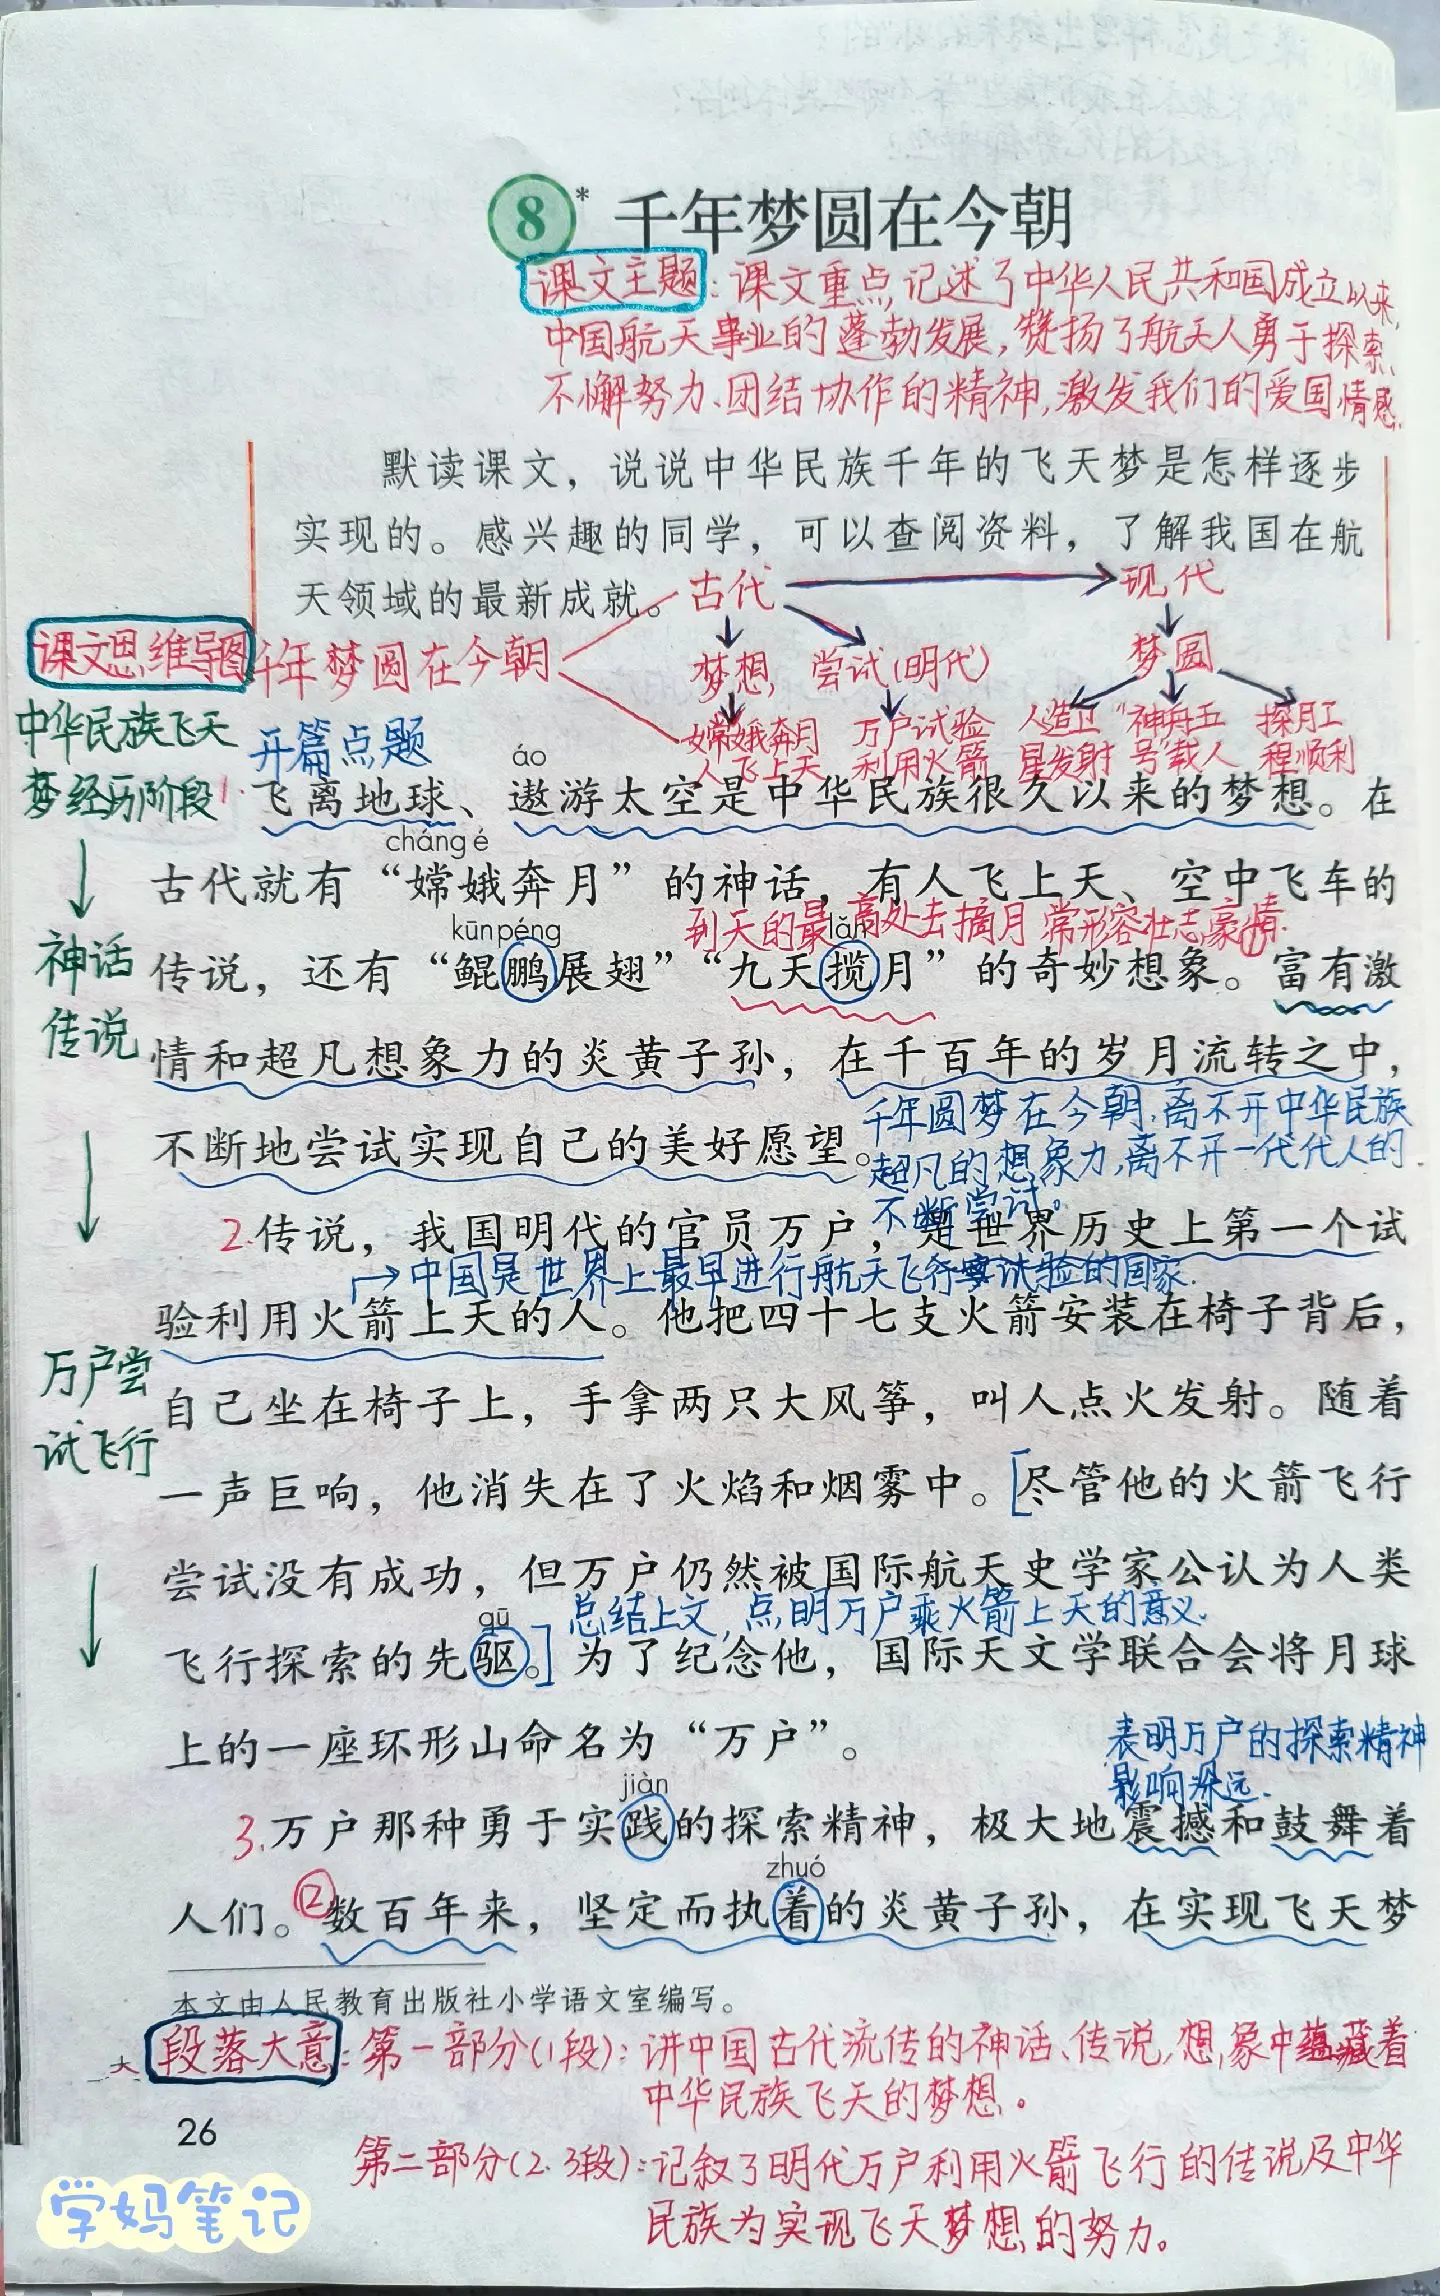 8* 千年梦圆在今朝
课文主题：课文重点记述了中华人民共和国成立以来,
中国航天事业的蓬勃发展,赞扬了航天人勇于探索、
不懈努力、团结协作的精神,激发我们的爱国情感.
默读课文，说说中华民族千年的飞天梦是怎样逐步
实现的。感兴趣的同学，可以查阅资料，了解我国在航
天领域的最新成就。
古代 现代
课文思维导图 千年梦圆在今朝
梦想, 尝试(明代) 梦圆
嫦娥奔月 万户试验 人造卫 "神舟五 探月工
人飞上天 利用火箭 星发射 号"载人 程顺利
中华民族飞天
梦经历阶段
开篇点题
áo
1.飞离地球、遨游太空是中华民族很久以来的梦想。在
cháng é
古代就有“嫦娥奔月”的神话，有人飞上天、空中飞车的
到天的最高处去摘月 常形容壮志豪情.
kūn péng lǎn
神话
传说，还有“鲲鹏展翅”“九天揽月”的奇妙想象。①富有激
传说
情和超凡想象力的炎黄子孙，在千百年的岁月流转之中，
千年圆梦在今朝,离不开中华民族
不断地尝试实现自己的美好愿望。
超凡的想象力,离不开一代代人的
不断尝试。
2.传说，我国明代的官员万户，是世界历史上第一个试
中国是世界上最早进行航天飞行试验的国家.
验利用火箭上天的人。他把四十七支火箭安装在椅子背后，
万户尝
自己坐在椅子上，手拿两只大风筝，叫人点火发射。随着
试飞行
一声巨响，他消失在了火焰和烟雾中。[尽管他的火箭飞行
尝试没有成功，但万户仍然被国际航天史学家公认为人类
总结上文,点明万户乘火箭上天的意义.
qū
飞行探索的先驱。]为了纪念他，国际天文学联合会将月球
上的一座环形山命名为“万户”。
表明万户的探索精神
影响深远.
jiàn
3.万户那种勇于实践的探索精神，极大地震撼和鼓舞着
zhuó
人们。②数百年来，坚定而执着的炎黄子孙，在实现飞天梦
本文由人民教育出版社小学语文室编写。
段落大意：第一部分(1段)：讲中国古代流传的神话、传说,想象中蕴藏着
中华民族飞天的梦想。
26
第二部分(2.3段)：记叙了明代万户利用火箭飞行的传说及中华
民族为实现飞天梦想的努力。
学妈笔记